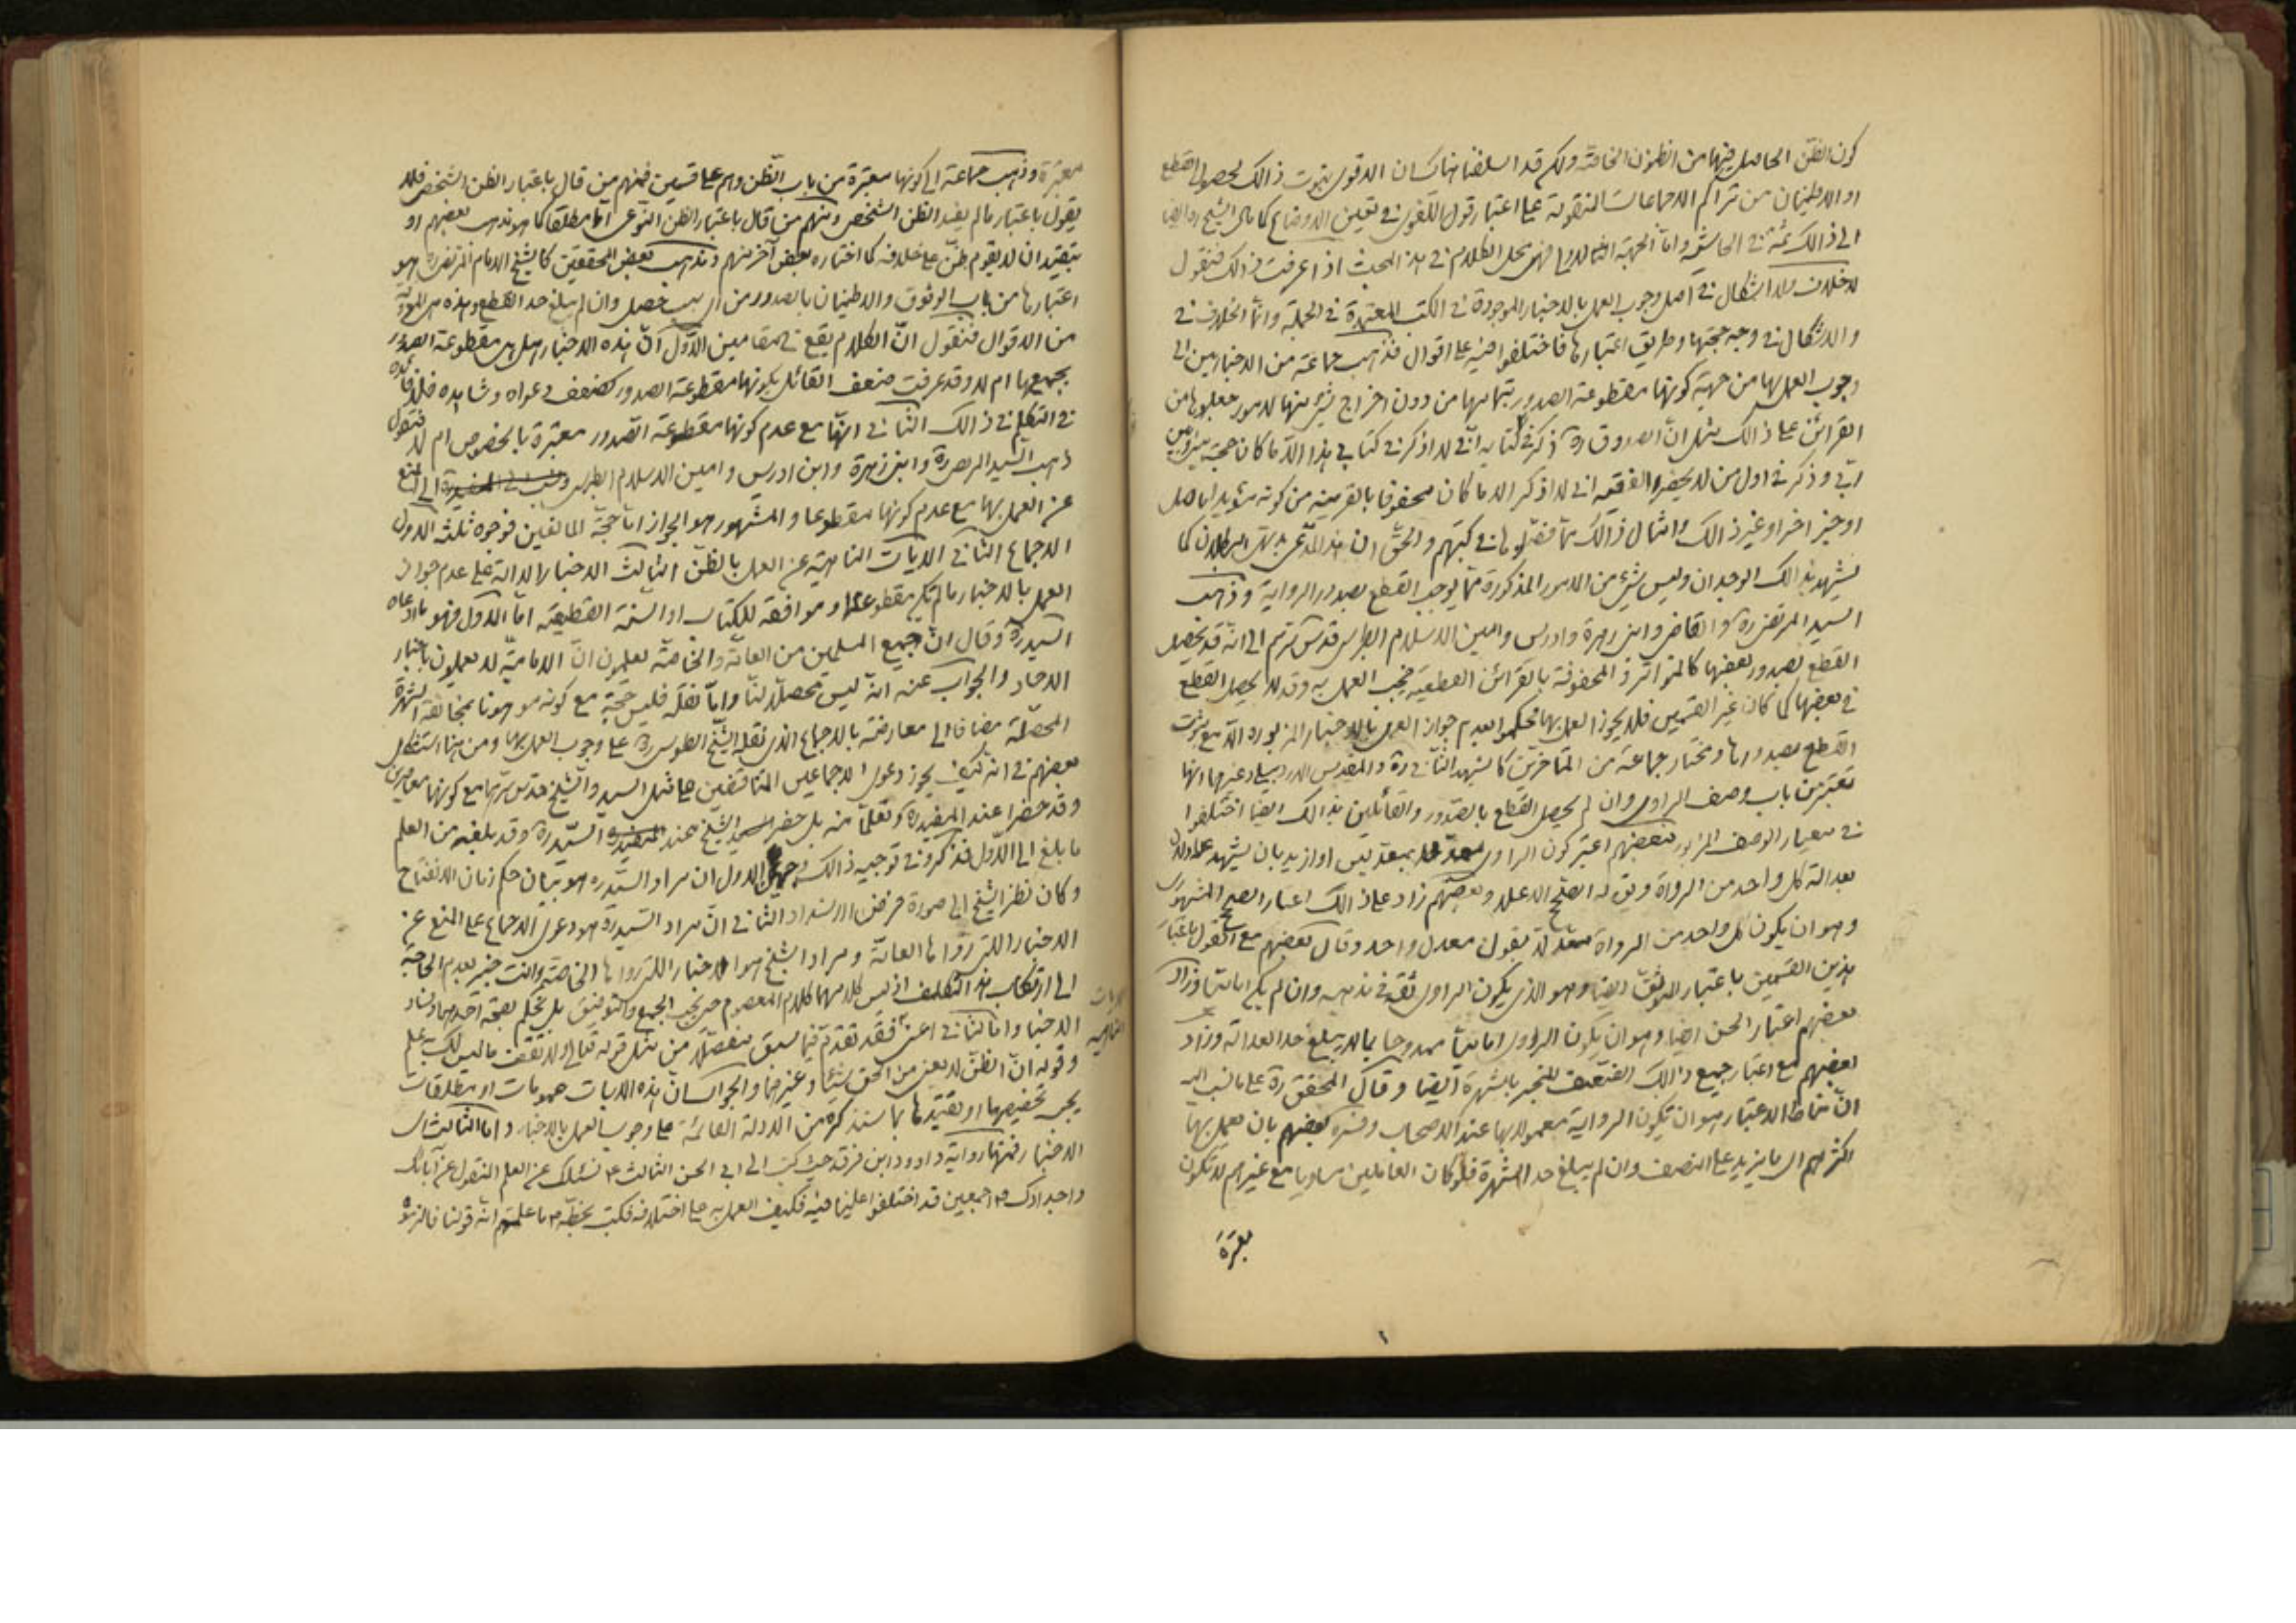 كون الظن الحاصل فيها من الظنون الخاصة ولكم قد اسلفنا هناك ان الاقوى ثبوت ذالك لحصول القطع
او الاطمينان من تراكم الاجماعات المنقولة على اعتبار قول اللغوى فى تعيين الاوضاع كما مال الشيخ ره ايضا
الى ذالك ثمة فى الحاشية واما الجهة الثالثة فهى محل الكلام فى هذا المبحث اذا عرفت ذالك فنقول
لا خلاف ولا اشكال فى اصل وجوب العمل بالاخبار الموجودة فى الكتب المعتمدة فى الجملة وانما الخلاف فى
والاشكال فى وجه حجيتها وطريق اعتبارها فاختلفوا فيه على اقوال فذهب جماعة من الاخباريين الى
وجوب العمل بها من جهة كونها مقطوعة الصدور بتمامها من دون اخراج شئ منها لامور جعلوها من
القرائن على ذالك مثل ان الصدوق ره ذكر فى كتابه انى لا اذكر فى كتابى هذا الا ما كان حجة بينى وبين
ربى وذكر فى اول من لا يحضره الفقيه انى لا اذكر الا ما كان محفوفا بالقرينة من كونه مؤيدا باصل
او خبر اخر او غير ذالك وامثال ذالك مما فصلوها فى كتبهم والحق ان هذا المدعى بديهى البطلان كما
يشهد بذالك الوجدان وليس شئ من الامور المذكورة مما يوجب القطع بصدور الرواية وذهب
السيد المرتضى ره والقاضى وابن زهرة وادريس وامين الاسلام الطبرسى قدس سرهم الى انه قد يحصل
القطع بصدور بعضها كالمتواتر والمحفوفة بالقرائن القطعية فيجب العمل به وقد لا يحصل القطع
فى بعضها كما كان غير القسمين فلا يجوز العمل بها فحكموا بعدم جواز العمل بالاخبار المزبوره الا مع ثبوت
القطع بصدورها ومختار جماعة من المتاخرين كالشهيد الثانى ره والمقدس الاردبيلى وغيرهما انها
تعتبر من باب وصف الراوى وان لم يحصل القطع بالصدور والقائلين بذالك ايضا اختلفوا
فى معيار الوصف المزبور فبعضهم اعتبر كون الراوى معدلا بمعدلين او ازيد بان يشهد عدلان
بعدالة كل واحد من الرواة ويق له الصحيح الاعلى وبعضهم زاد على ذالك اعتبار الصحيح المشهورى
وهو ان يكون كل واحد من الرواة معدلا بقول معدل واحد وقال بعضهم مع القول باعتبار
هذين القسمين باعتبار الموثق ايضا وهو الذى يكون الراوى ثقة فى مذهبه وان لم يكن اماميا وزاد
بعضهم اعتبار الحسن ايضا وهو ان يكون الراوى اماميا ممدوحا بما لا يبلغ حد العدالة وزاد
بعضهم مع اعتبار جميع ذالك الضعيف المنجبر بالشهرة ايضا وقال المحقق ره على ما نسب اليه
ان مناط الاعتبار هو ان تكون الرواية معمولا بها عند الاصحاب وفسره بعضهم بان يعمل بها
اكثرهم اى ما يزيد على النصف وان لم يبلغ حد الشهرة فلو كان العاملين مساويا مع غيرهم لا تكون
معتبرة
معتبرة وذهب جماعة الى كونها معتبرة من باب الظن وهم على قسمين فمنهم من قال باعتبار الظن الشخصى فلا
يقول باعتبار ما لم يفد الظن الشخصى ومنهم من قال باعتبار الظن النوعى اما مطلقا كما هو مذهب بعضهم او
بتقييد ان لا يقوم ظن على خلافه كما اختاره بعض آخر منهم ومذهب بعض المحققين كالشيخ الامام المرتضى ره هو
اعتبارها من باب الوثوق والاطمينان بالصدور من اى سبب حصل وان لم يبلغ حد القطع وهذه هى
من الاقوال فنقول ان الكلام يقع فى مقامين الاول ان هذه الاخبار هل هى مقطوعة الصدور
بجميعها ام لا وقد عرفت ضعف القائل بكونها مقطوعة الصدور كضعف دعواه وشاهده فلا فائدة
فى التكلم فى ذالك الثانى انها مع عدم كونها مقطوعة الصدور معتبرة بالخصوص ام لا فنقول
ذهب السيد المرتضى ره وابن زهرة وابن ادريس وامين الاسلام الطبرسى الى المنع
عن العمل بها مع عدم كونها مقطوعا والمشهور هو الجواز اما حجة المانعين فوجوه ثلثه الاول
الاجماع الثانى الايات الناهية عن العمل بالظن الثالث الاخبار الدالة على عدم جواز
العمل بالاخبار ما لم تكن مقطوعة او موافقه للكتاب او السنة القطعية اما الاول فهو ما ادعاه
السيد ره وقال ان جميع المسلمين من العامة والخاصة يعلمون ان الامامية لا يعملون باخبار
الاحاد والجواب عنه انه ليس محصلا لنا واما نقله فليس حجة مع كونه موهونا بمخالفة الشهرة
المحصلة مضافا الى معارضته بالاجماع الذى نقله الشيخ الطوسى ره على وجوب العمل بها ومن هنا استشكل
بعضهم فى انه كيف يجوز دعوى الاجماعين المتناقضين من مثل السيد والشيخ قدس سرهما مع كونهما معاصرين
وقد حضرا عند المفيد ره وتعلما منه بل حضر الشيخ عند السيد ره وقد بلغه من العلم
ما بلغ الى الاول فذكروا فى توجيه ذالك وجهين الاول ان مراد السيد ره هو بيان حكم زمان الانفتاح
وكان نظر الشيخ الى صورة فرض الانسداد الثانى ان مراد السيد ره هو دعوى الاجماع على المنع عن
الاخبار التى رواها العامة ومراد الشيخ هو الاخبار التى رواها الخاصة وانت خبير بعدم الحاجة
الى ارتكاب هذا التكلف اذ ليس كلامهما كلام المعصوم حتى يجب الجمع والتوفيق بل نحكم بصحة احدهما وفساد
الاخر واما الثانى اعنى فقد تقدم فيما سبق مفصلا من مثل قوله تعالى ولا تقف ما ليس لك به علم
الايات الناهية
وقوله ان الظن لا يغنى من الحق شيئا وغيرهما والجواب ان هذه الايات عمومات او مطلقات
يجب تخصيصها او تقييدها بما سنذكره من الادلة القائمة على وجوب العمل بالاخبار واما الثالث اى
الاخبار فمنها رواية داود ابن فرقد حيث كتب الى ابى الحسن الثالث ع نسئلك عن العلم المنقول عن آبائك
واجدادك ع اجمعين قد اختلفوا علينا فيه فكيف العمل به على اختلافه فكتب بخطه ع ما علمتم انه قولنا فالزموه